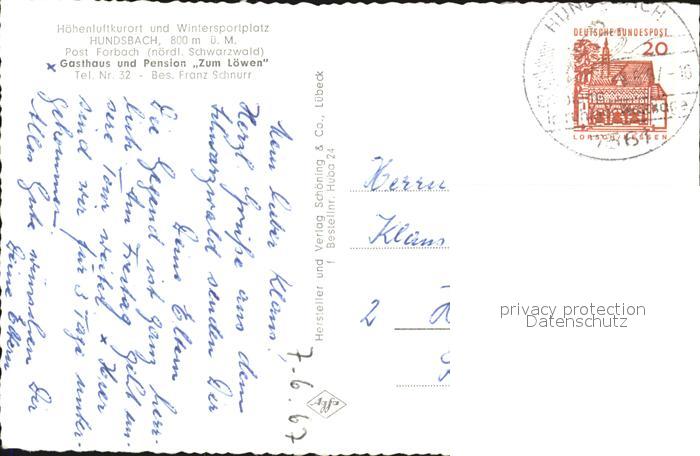 Höhenluftkurort und Wintersportplatz
HUNDSBACH, 800 m ü. M.
Post Forbach (nördl. Schwarzwald)
x Gasthaus und Pension „Zum Löwen"
Tel. Nr. 32 - Bes. Franz Schnurr
Mein lieber Klaus,
Herzl. Grüße aus dem
Schwarzwald senden Dir
Deine Eltern
Die Gegend ist ganz herr-
lich. Am Freitag geht un-
sere Tour weiter. x Hier
sind wir für 3 Tage unter-
gekommen.
Alles Gute wünschen Dir
Deine Eltern
7-6.67
Hersteller und Verlag Schöning & Co., Lübeck
Bestellnr. Huba 24
Herrn
Klaus
2
HUNDSBACH
DEUTSCHE BUNDESPOST
20
LORSCH/HESSEN
privacy protection
Datenschutz